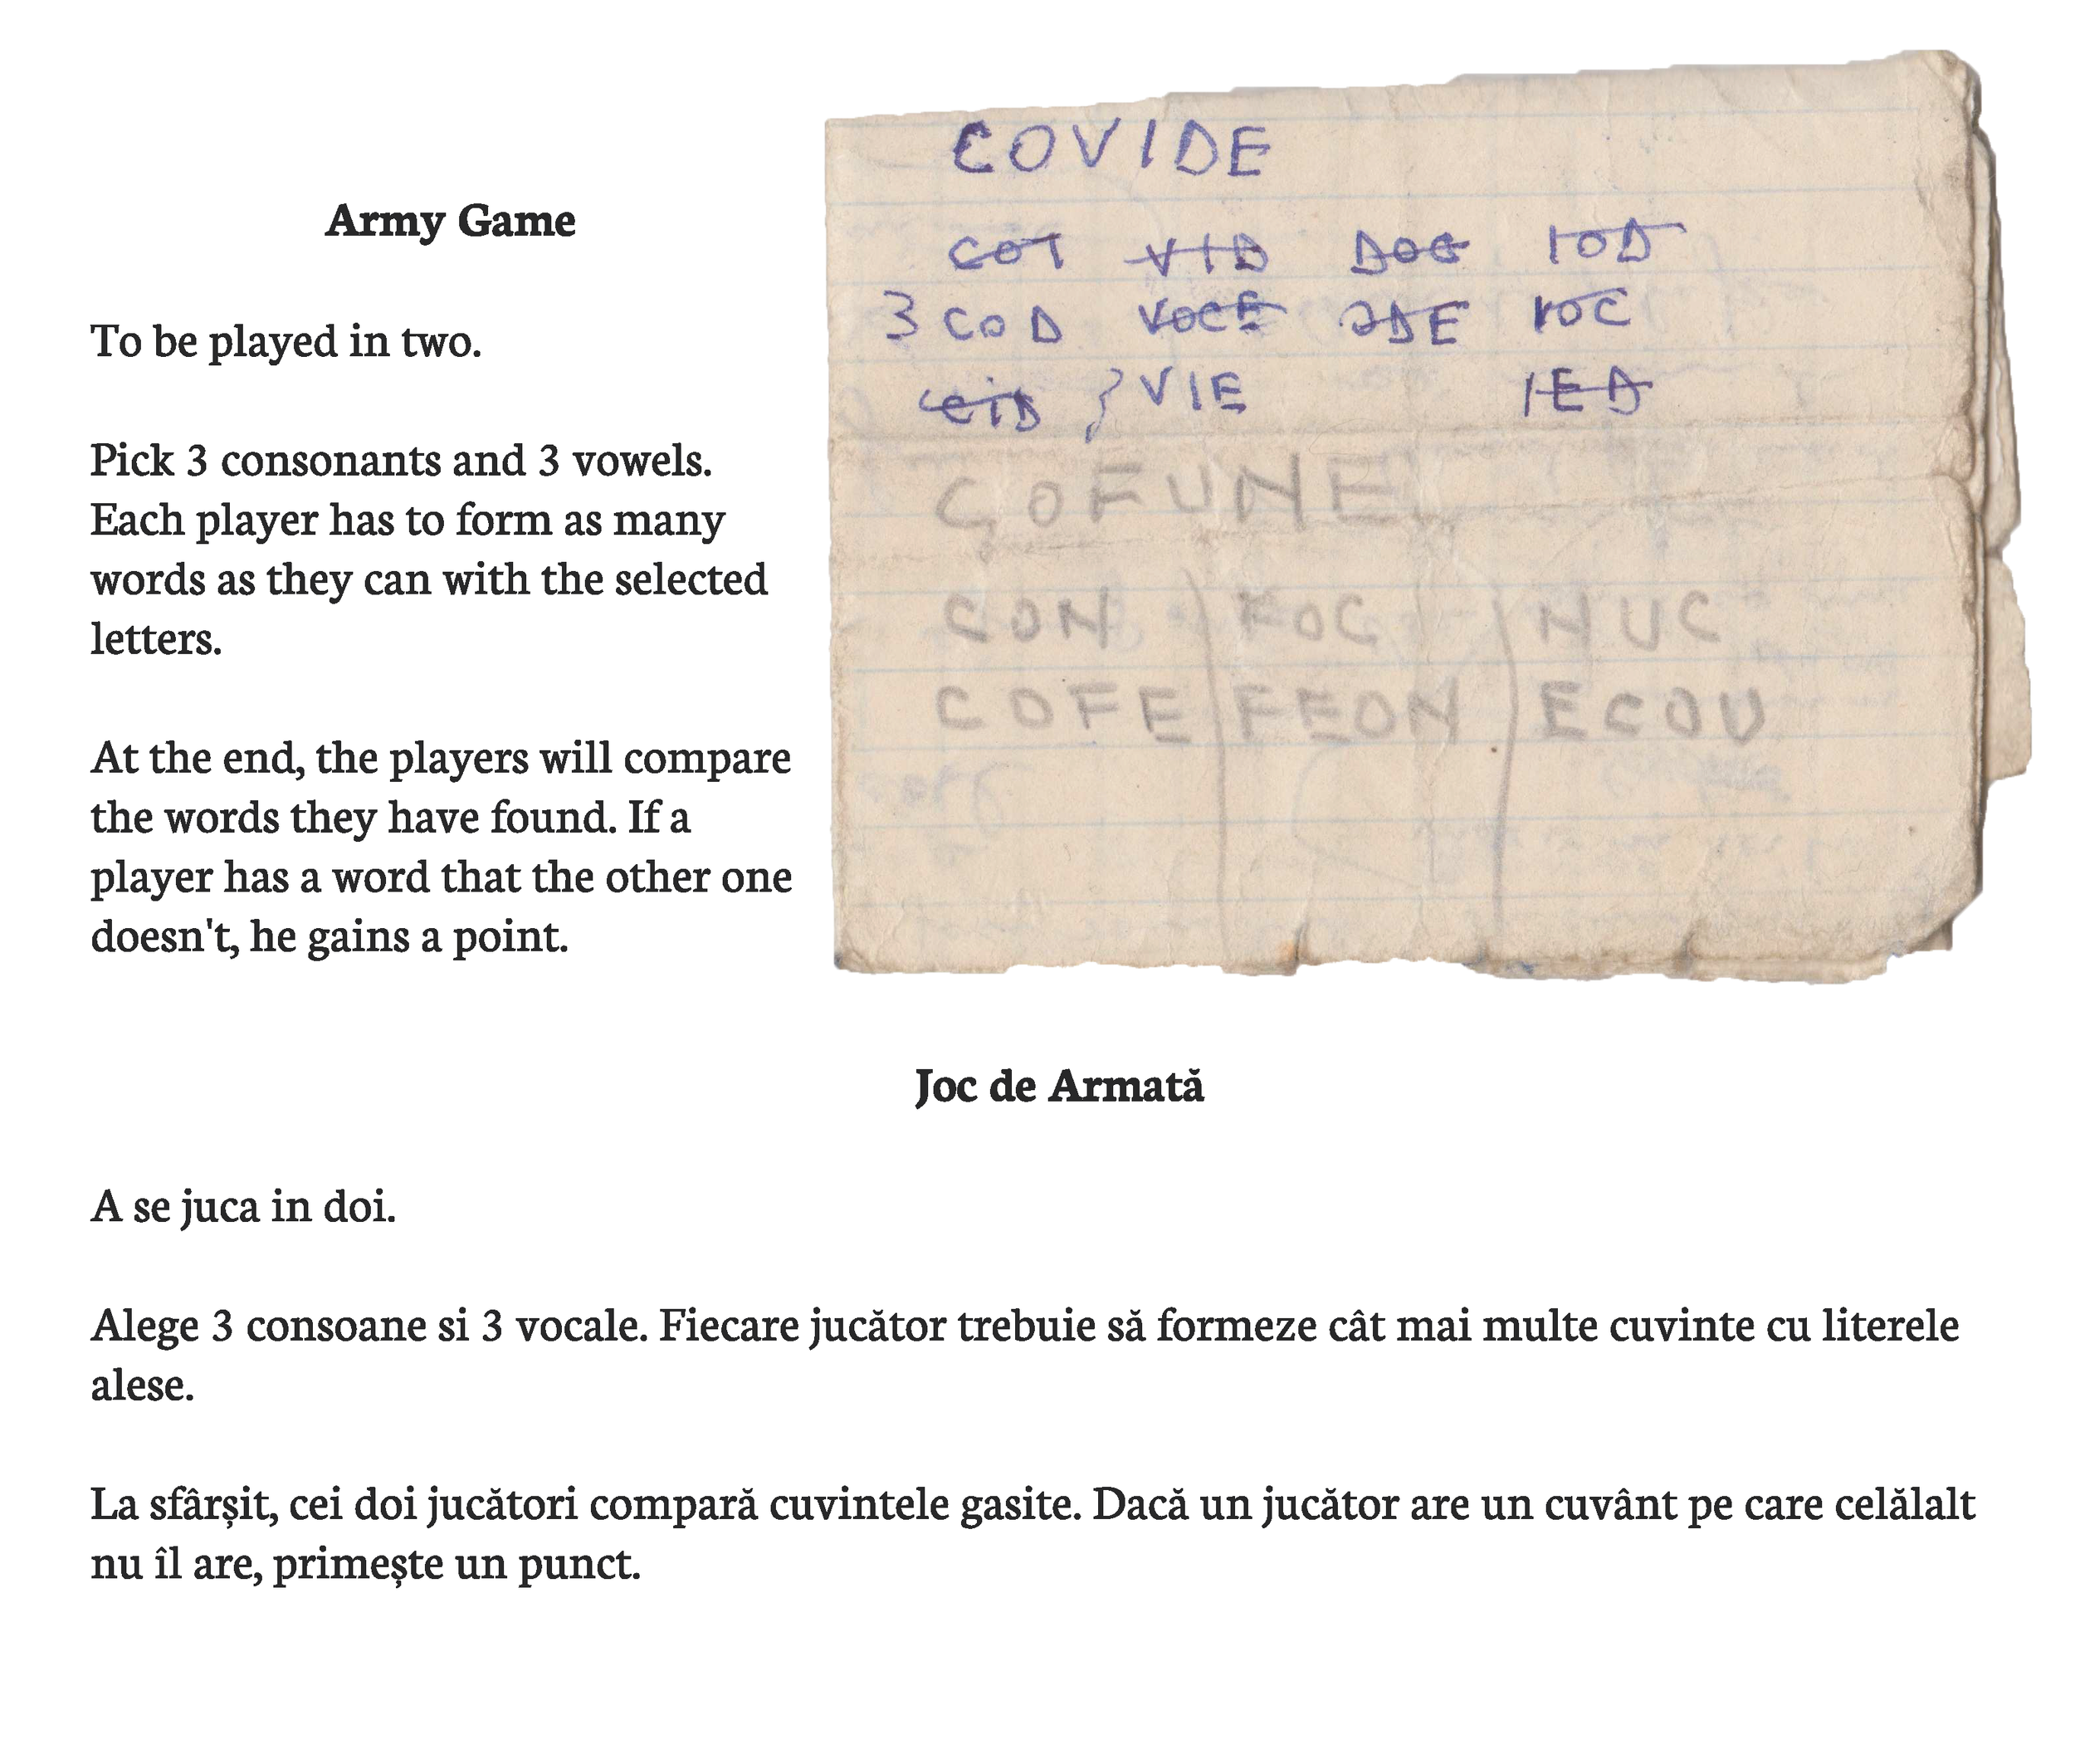 Army Game
To be played in two.
Pick 3 consonants and 3 vowels.
Each player has to form as many
words as they can with the selected
letters.
At the end, the players will compare
the words they have found. If a
player has a word that the other one
doesn't, he gains a point.
COVIDE
COI VID DOC IOD
3 COD VOCE ODE IOC
CID } VIE IED
COFUNE
CON FOC NUC
COFE FEON ECOU
Joc de Armată
A se juca in doi.
Alege 3 consoane si 3 vocale. Fiecare jucător trebuie să formeze cât mai multe cuvinte cu literele
alese.
La sfârșit, cei doi jucători compară cuvintele gasite. Dacă un jucător are un cuvânt pe care celălalt
nu îl are, primește un punct.